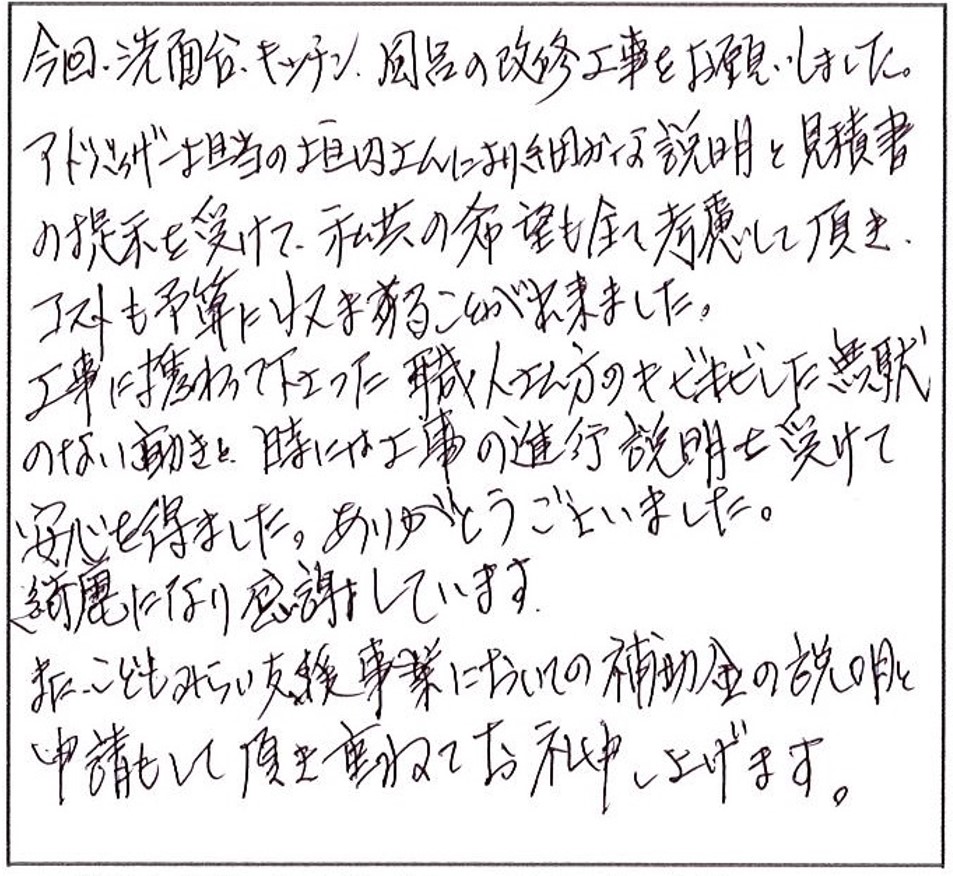 今回、洗面台、キッチン、風呂の改修工事をお願いしました。
アドバイザー担当の垣内さんにより細かな説明と見積書
の提示を受けて、私共の希望も全て考慮して頂き、
コストも予算に収まることが出来ました。
工事に携わって下さった職人さん方のキビキビした無駄
のない動きと、時には工事の進行説明を受けて
安心を得ました。ありがとうございました。
綺麗になり感謝しています。
また、こどもみらい支援事業においての補助金の説明と
申請もして頂き重ねてお礼申し上げます。